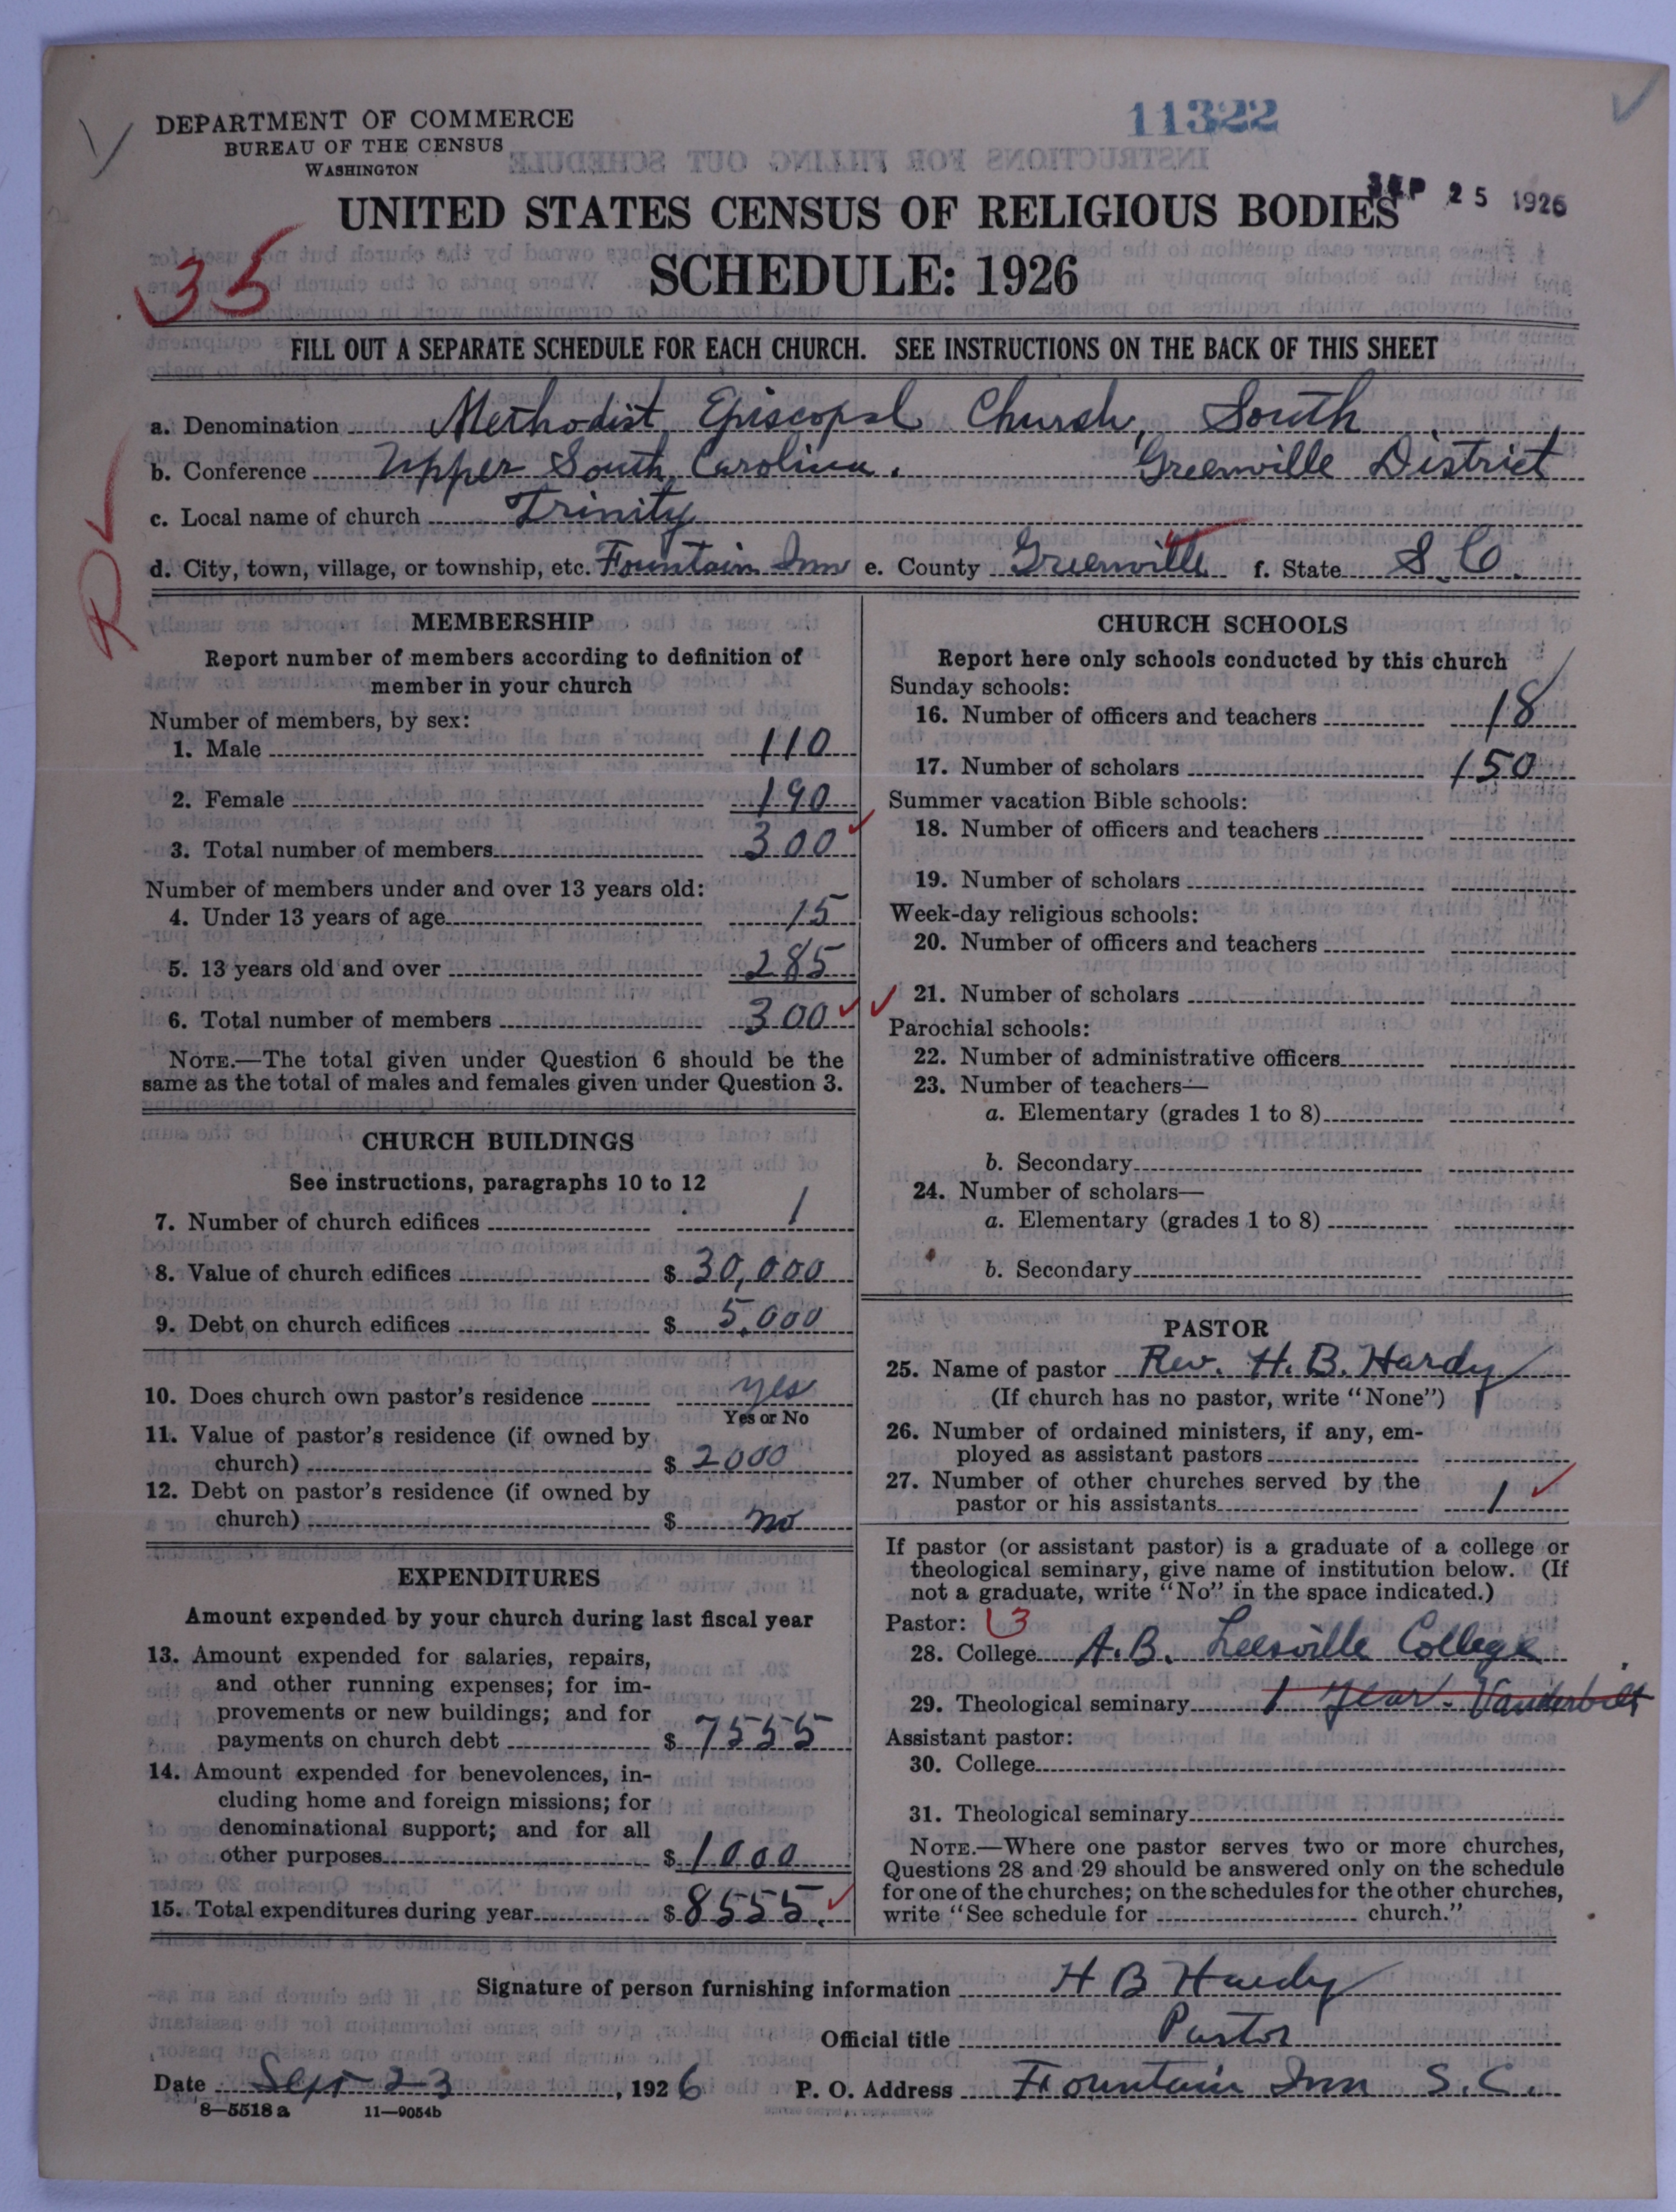 DEPARTMENT OF COMMERCE
BUREAU OF THE CENSUS
WASHINGTON
11322
SEP 25 1926
UNITED STATES CENSUS OF RELIGIOUS BODIES
SCHEDULE: 1926
35
FILL OUT A SEPARATE SCHEDULE FOR EACH CHURCH. SEE INSTRUCTIONS ON THE BACK OF THIS SHEET
a. Denomination Methodist Episcopal Church, South
b. Conference Upper South Carolina. Greenville District
c. Local name of church Trinity
d. City, town, village, or township, etc. Fountain Inn e. County Greenville f. State S.C.
MEMBERSHIP
Report number of members according to definition of
member in your church
Number of members, by sex:
1. Male 110
2. Female 190
3. Total number of members 300
Number of members under and over 13 years old:
4. Under 13 years of age 15
5. 13 years old and over 285
6. Total number of members 300
NOTE.—The total given under Question 6 should be the
same as the total of males and females given under Question 3.
CHURCH BUILDINGS
See instructions, paragraphs 10 to 12
7. Number of church edifices 1
8. Value of church edifices $ 30,000
9. Debt on church edifices $ 5,000
10. Does church own pastor's residence yes
Yes or No
11. Value of pastor's residence (if owned by
church) $ 2000
12. Debt on pastor's residence (if owned by
church) $ no
EXPENDITURES
Amount expended by your church during last fiscal year
13. Amount expended for salaries, repairs,
and other running expenses; for im-
provements or new buildings; and for
payments on church debt $ 7555
14. Amount expended for benevolences, in-
cluding home and foreign missions; for
denominational support; and for all
other purposes $ 1000
15. Total expenditures during year $ 8555.
CHURCH SCHOOLS
Report here only schools conducted by this church
Sunday schools:
16. Number of officers and teachers 18
17. Number of scholars 150
Summer vacation Bible schools:
18. Number of officers and teachers
19. Number of scholars
Week-day religious schools:
20. Number of officers and teachers
21. Number of scholars
Parochial schools:
22. Number of administrative officers
23. Number of teachers—
a. Elementary (grades 1 to 8)
b. Secondary
24. Number of scholars—
a. Elementary (grades 1 to 8)
b. Secondary
PASTOR
25. Name of pastor Rev. H. B. Hardy
(If church has no pastor, write "None")
26. Number of ordained ministers, if any, em-
ployed as assistant pastors
27. Number of other churches served by the
pastor or his assistants 1
If pastor (or assistant pastor) is a graduate of a college or
theological seminary, give name of institution below. (If
not a graduate, write "No" in the space indicated.)
Pastor: 3
28. College A.B. Leesville College
29. Theological seminary 1 year - Vanderbilt
Assistant pastor:
30. College
31. Theological seminary
NOTE.—Where one pastor serves two or more churches,
Questions 28 and 29 should be answered only on the schedule
for one of the churches; on the schedules for the other churches,
write "See schedule for church."
Signature of person furnishing information H B Hardy
Official title Pastor
Date Sept 23, 1926 P. O. Address Fountain Inn S.C.
8—5518 a 11—9054b